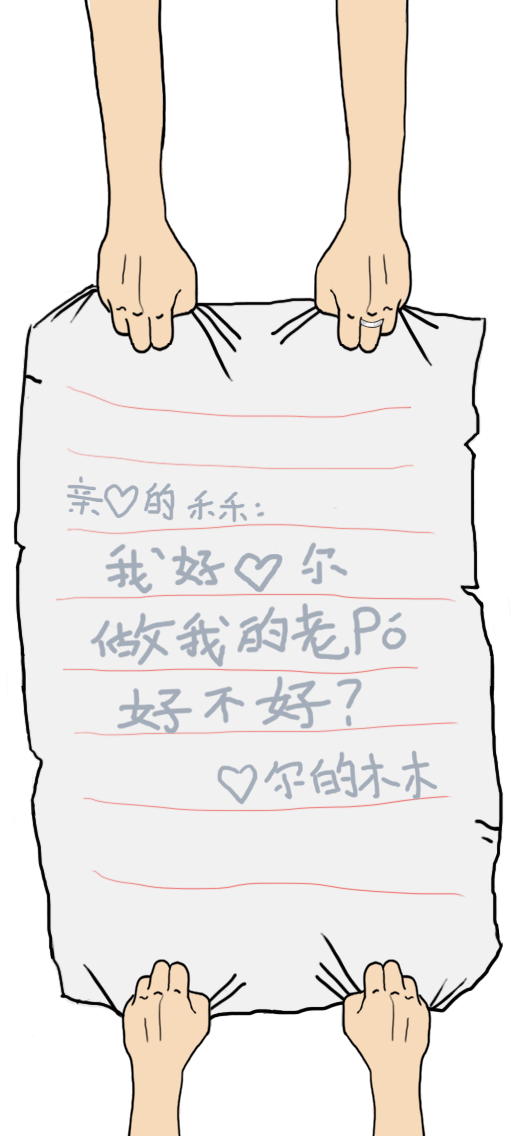 亲♡的 禾禾:
我好♡尔
做我的老Pó
好不好?
♡尔的木木